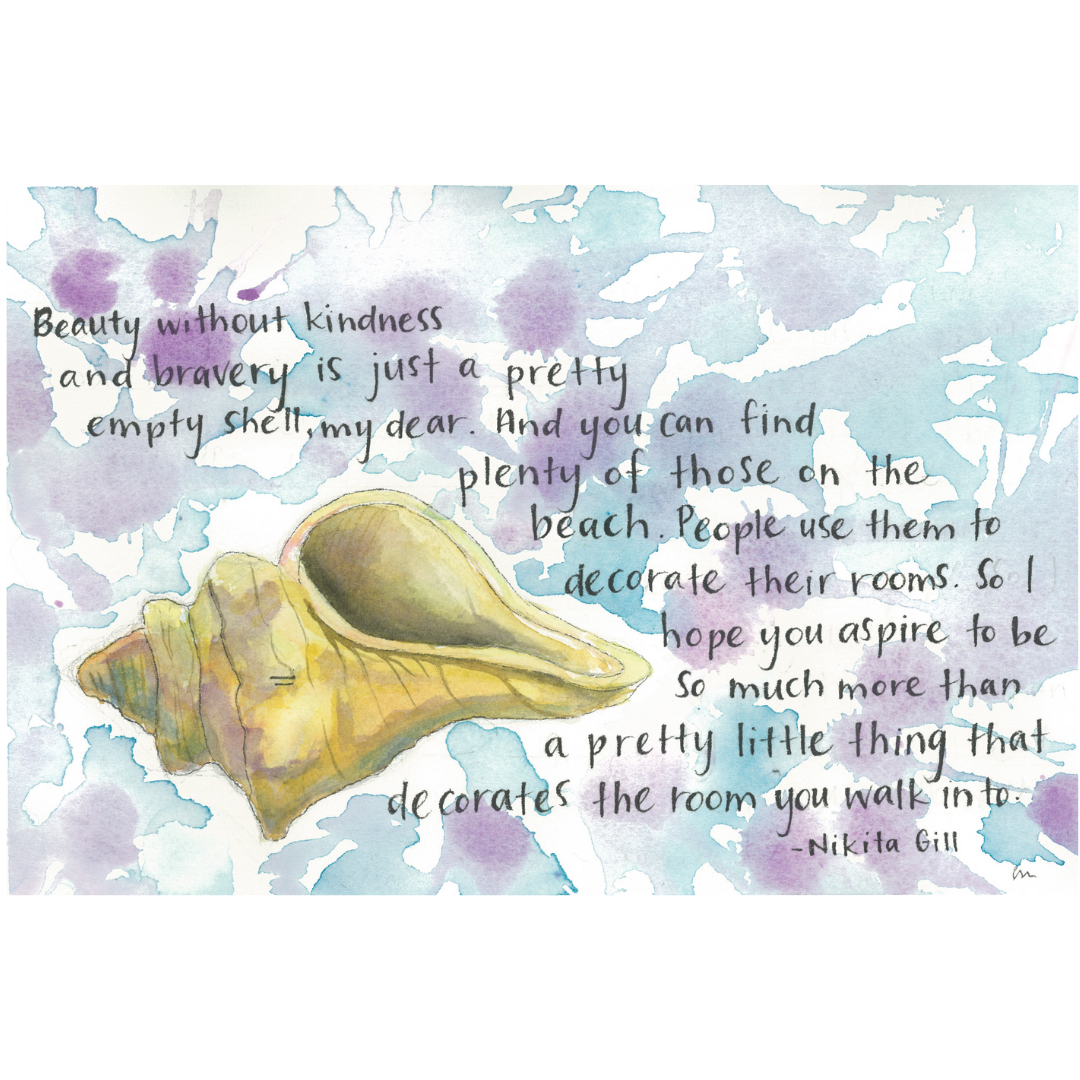 Beauty without kindness
and bravery is just a pretty
empty shell, my dear. And you can find
plenty of those on the
beach. People use them to
decorate their rooms. So I
hope you aspire to be
so much more than
a pretty little thing that
decorates the room you walk into.
-Nikita Gill